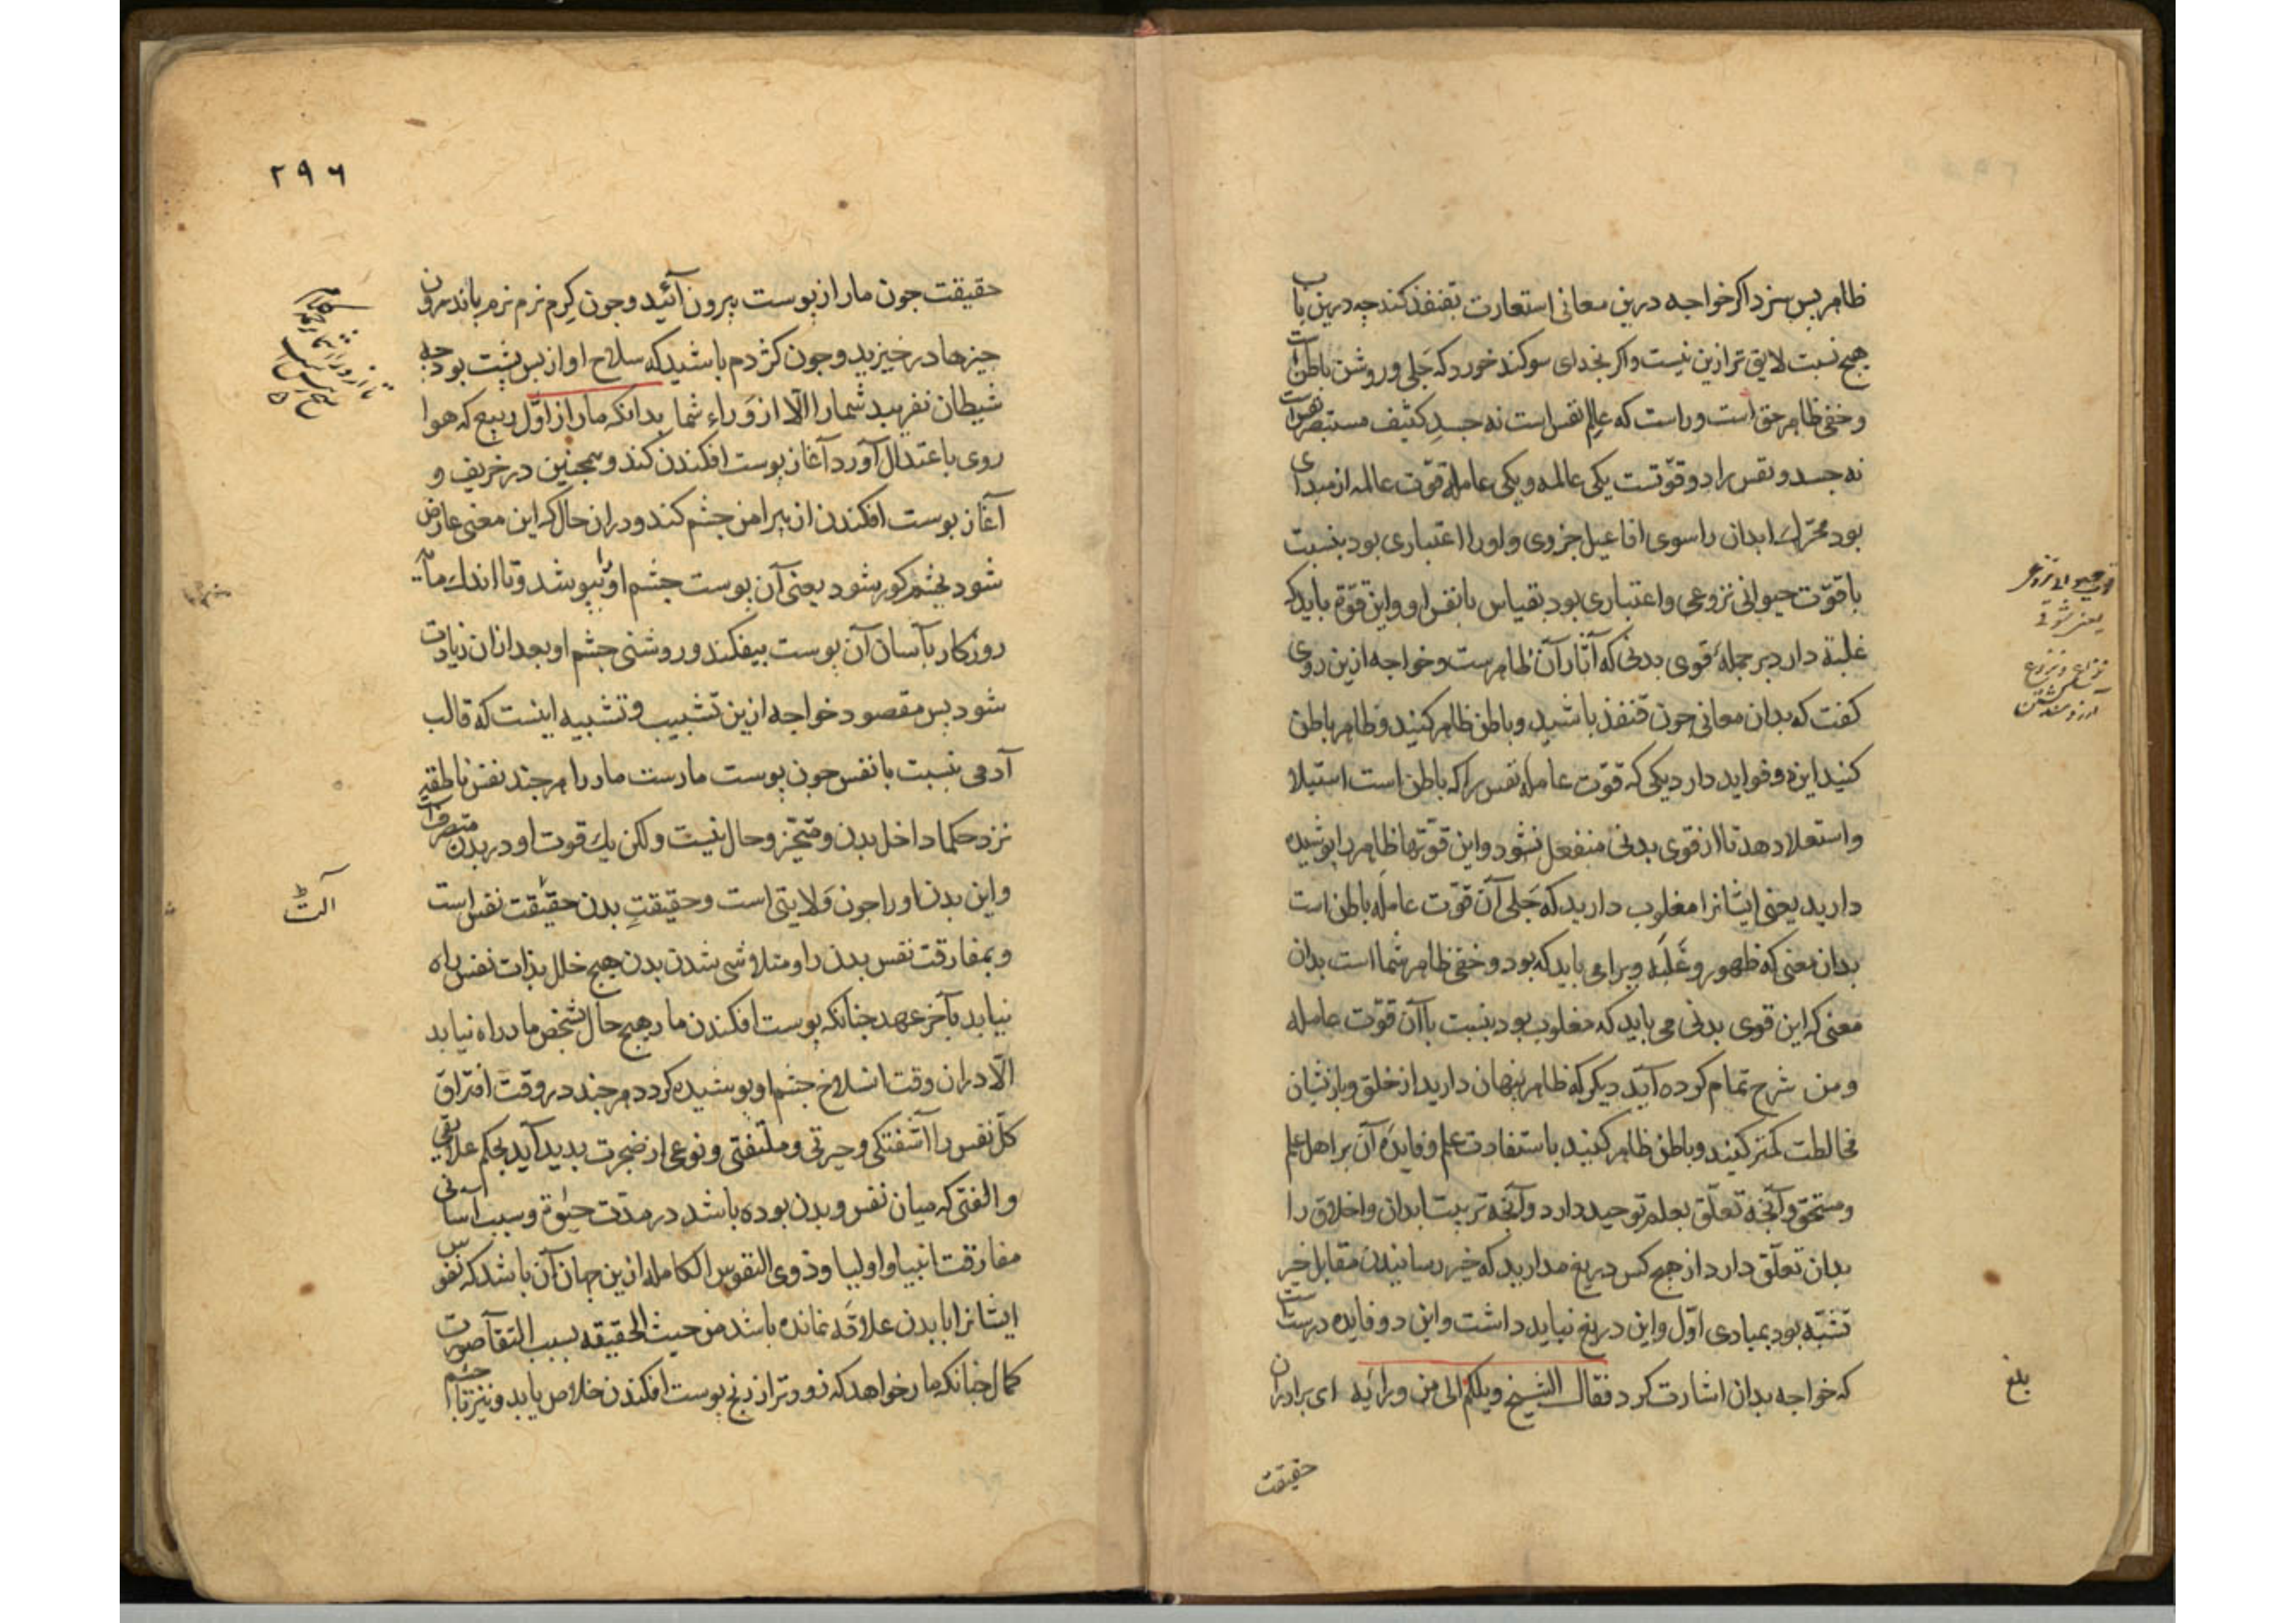 ظاهر بس سزد اکر خواجه درین معانی استعارت بقنفذ کند چه درین باب
هیج نسبت لایق تر ازین نیست واکر بخدای سوکند خورد که جَلی وروشن باطن است
وخفی ظاهر حق است وراست که عالِم نفس است نه جسدِ کثیف مستبصر
نه جسد ونفس را دو قوّتست یکی عالمه ویکی عامله قوّت عالمه از مبدای
بود محرّک ابدان را سوی افاعیل جزوی واورا اعتباری بود بنسبت
با قوّت حیوانی نزوعی واعتباری بود بقیاس با نفس او واین قوّة باید که
غلبة دارد بر جملهٔ قوی بدنی که آثار آن ظاهرست وخواجه ازین روی
کفت که بدان معانی چون قنفذ باشید وباطن ظاهر کنید وظاهر باطن
کنید این دو فواید دارد یکی که قوّت عامله نفس را که باطن است استیلا
واستعلا دهد تا از قوی بدنی منفعل نشود واین قوّتها ظاهر را پوشیده
دارید یعنی ایشانرا مغلوب دارید که جَلی آن قوّت عامله باطن است
بدان معنی که ظهور وغَلَبَه ویرا می باید که بود وخفی ظاهر شما است بدان
معنی که این قوی بدنی می باید که مغلوب بود بنسبت با آن قوّت عامله
ومن شرح تمام کرده آید دیکر که ظاهر پنهان دارید از خلق وبا زیشان
مخالطت کمتر کنید وباطن ظاهر کنید باستفادت علم وفایدهٔ آن بر اهل علم
ومستحق وآنجه تعلّق بعلم توحید دارد وآنجه تربیت ابدان واخلاق را
بدان تعلّق دارد از هیچ کس دریغ مدارید که خیر رسانیدن مقابل خیر
تشبّه بود بمبادی اوّل واین دریغ نباید داشت واین دو فایده درست است
که خواجه بدان اشارت کرد فقال الشیخ ویلکم الی من ورایه ای برادران
حقیقت
بلغ
٢٩٦
حقیقت جون مار از پوست بیرون آئید وجون کِرم نرم نرم باندرون
جیزها درخیزید وجون کژدم باشید که سلاح او از بس بشت بود جه
شیطان نفریبد شما را الّا از وَراءِ شما بدانکه مار از اوّل ربیع که هوا
روی باعتدال آورد آغاز پوست افکندن کند وهمجنین در خریف و
آغاز بوست افکندن از پیرامن جشم کند ودران حال که این معنی عارض
شود بجشم کور شود یعنی آن پوست جشم او بپوشد وتا اندک مایه
روزکار بآسان آن پوست بیفکند وروشنی جشم او بعد ازان زیادت
شود بس مقصود خواجه ازین تشبیب وتشبیه اینست که قالب
آدمی بنسبت با نفس جون پوست مارست مار را هرجند نفس ناطقه
نزد حکما داخل بدن ومتحیّز وحال نیست ولکن یک قوت او در بدن متصرف است
واین بدن اورا جون وَلایتی است وحقیقتِ بدن حقیقت نفس است
وبمفارقت نفس بدن را ومتلاشی شدن بدن هیچ خلل بذات نفس راه
نیابد بآخر عهد جنانکه پوست افکندن مار هیج حال شخص مار راه نیابد
الّا دران وقت انسلاخ جشم او پوشیده کردد هرجند در وقت افتراق
کلّ نفس را آشفتکی وحیرتی وملتفتی ونوعی از ضجرت پدید آید بحکم علایقی
والفتی که میان نفس وبدن بوده باشد در مدّت حیوة وسبب آسانی
مفارقت انبیا واولیا وذوی النفوس الکامله ازین جهان آن باشد که نفوس
ایشانرا با بدن علاقه نمانده باشد من حیث الحقیقه بسبب التقآ صورت
کمال جنانکه مار خواهد که زودتر از رنج پوست افکندن خلاص یابد ونیز تا جشم
آلت